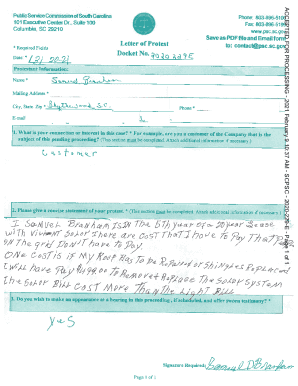 Public Service Commission of South Carolina
101 Executive Center Dr., Suite 100
Columbia, SC 29210
Phone: 803-896-5100
Fax: 803-896-5199
www.psc.sc.gov
Save as PDF file and Email form
to: contact@psc.sc.gov
* Required Fields
Letter of Protest
Date * 2021
Docket No.
Protestant Information:
Name * Samuel Branham
Mailing Address *
City, State Zip * Blythewood S.C. Phone *
E-mail
1. What is your connection or interest in this case? * For example, are you a customer of the Company that is the
subject of this pending proceeding? (This section must be completed. Attach additional information if necessary.)
Customer
2. Please give a concise statement of your protest. * (This section must be completed. Attach additional information if necessary.)
I Samuel Branham Is in the 5th year of a 20 year Lease
with Vivint Solar There are Cost That I have to Pay That People
on The grid Don't have to Pay.
One Cost is if My Roof Has to be Repaired or Shingles Replaced
I will have Pay to Remove + Replace The Solar System
The Solar Bill Cost More Than The Light Bill
3. Do you wish to make an appearance or a hearing in this proceeding, if scheduled, and offer sworn testimony? *
yes
Signature Required: Samuel D Branham
Page 1 of 1
ACCEPTED FOR PROCESSING - 2021 February 3 10:37 AM - SCPSC - 2020-229-E - Page 1 of 1